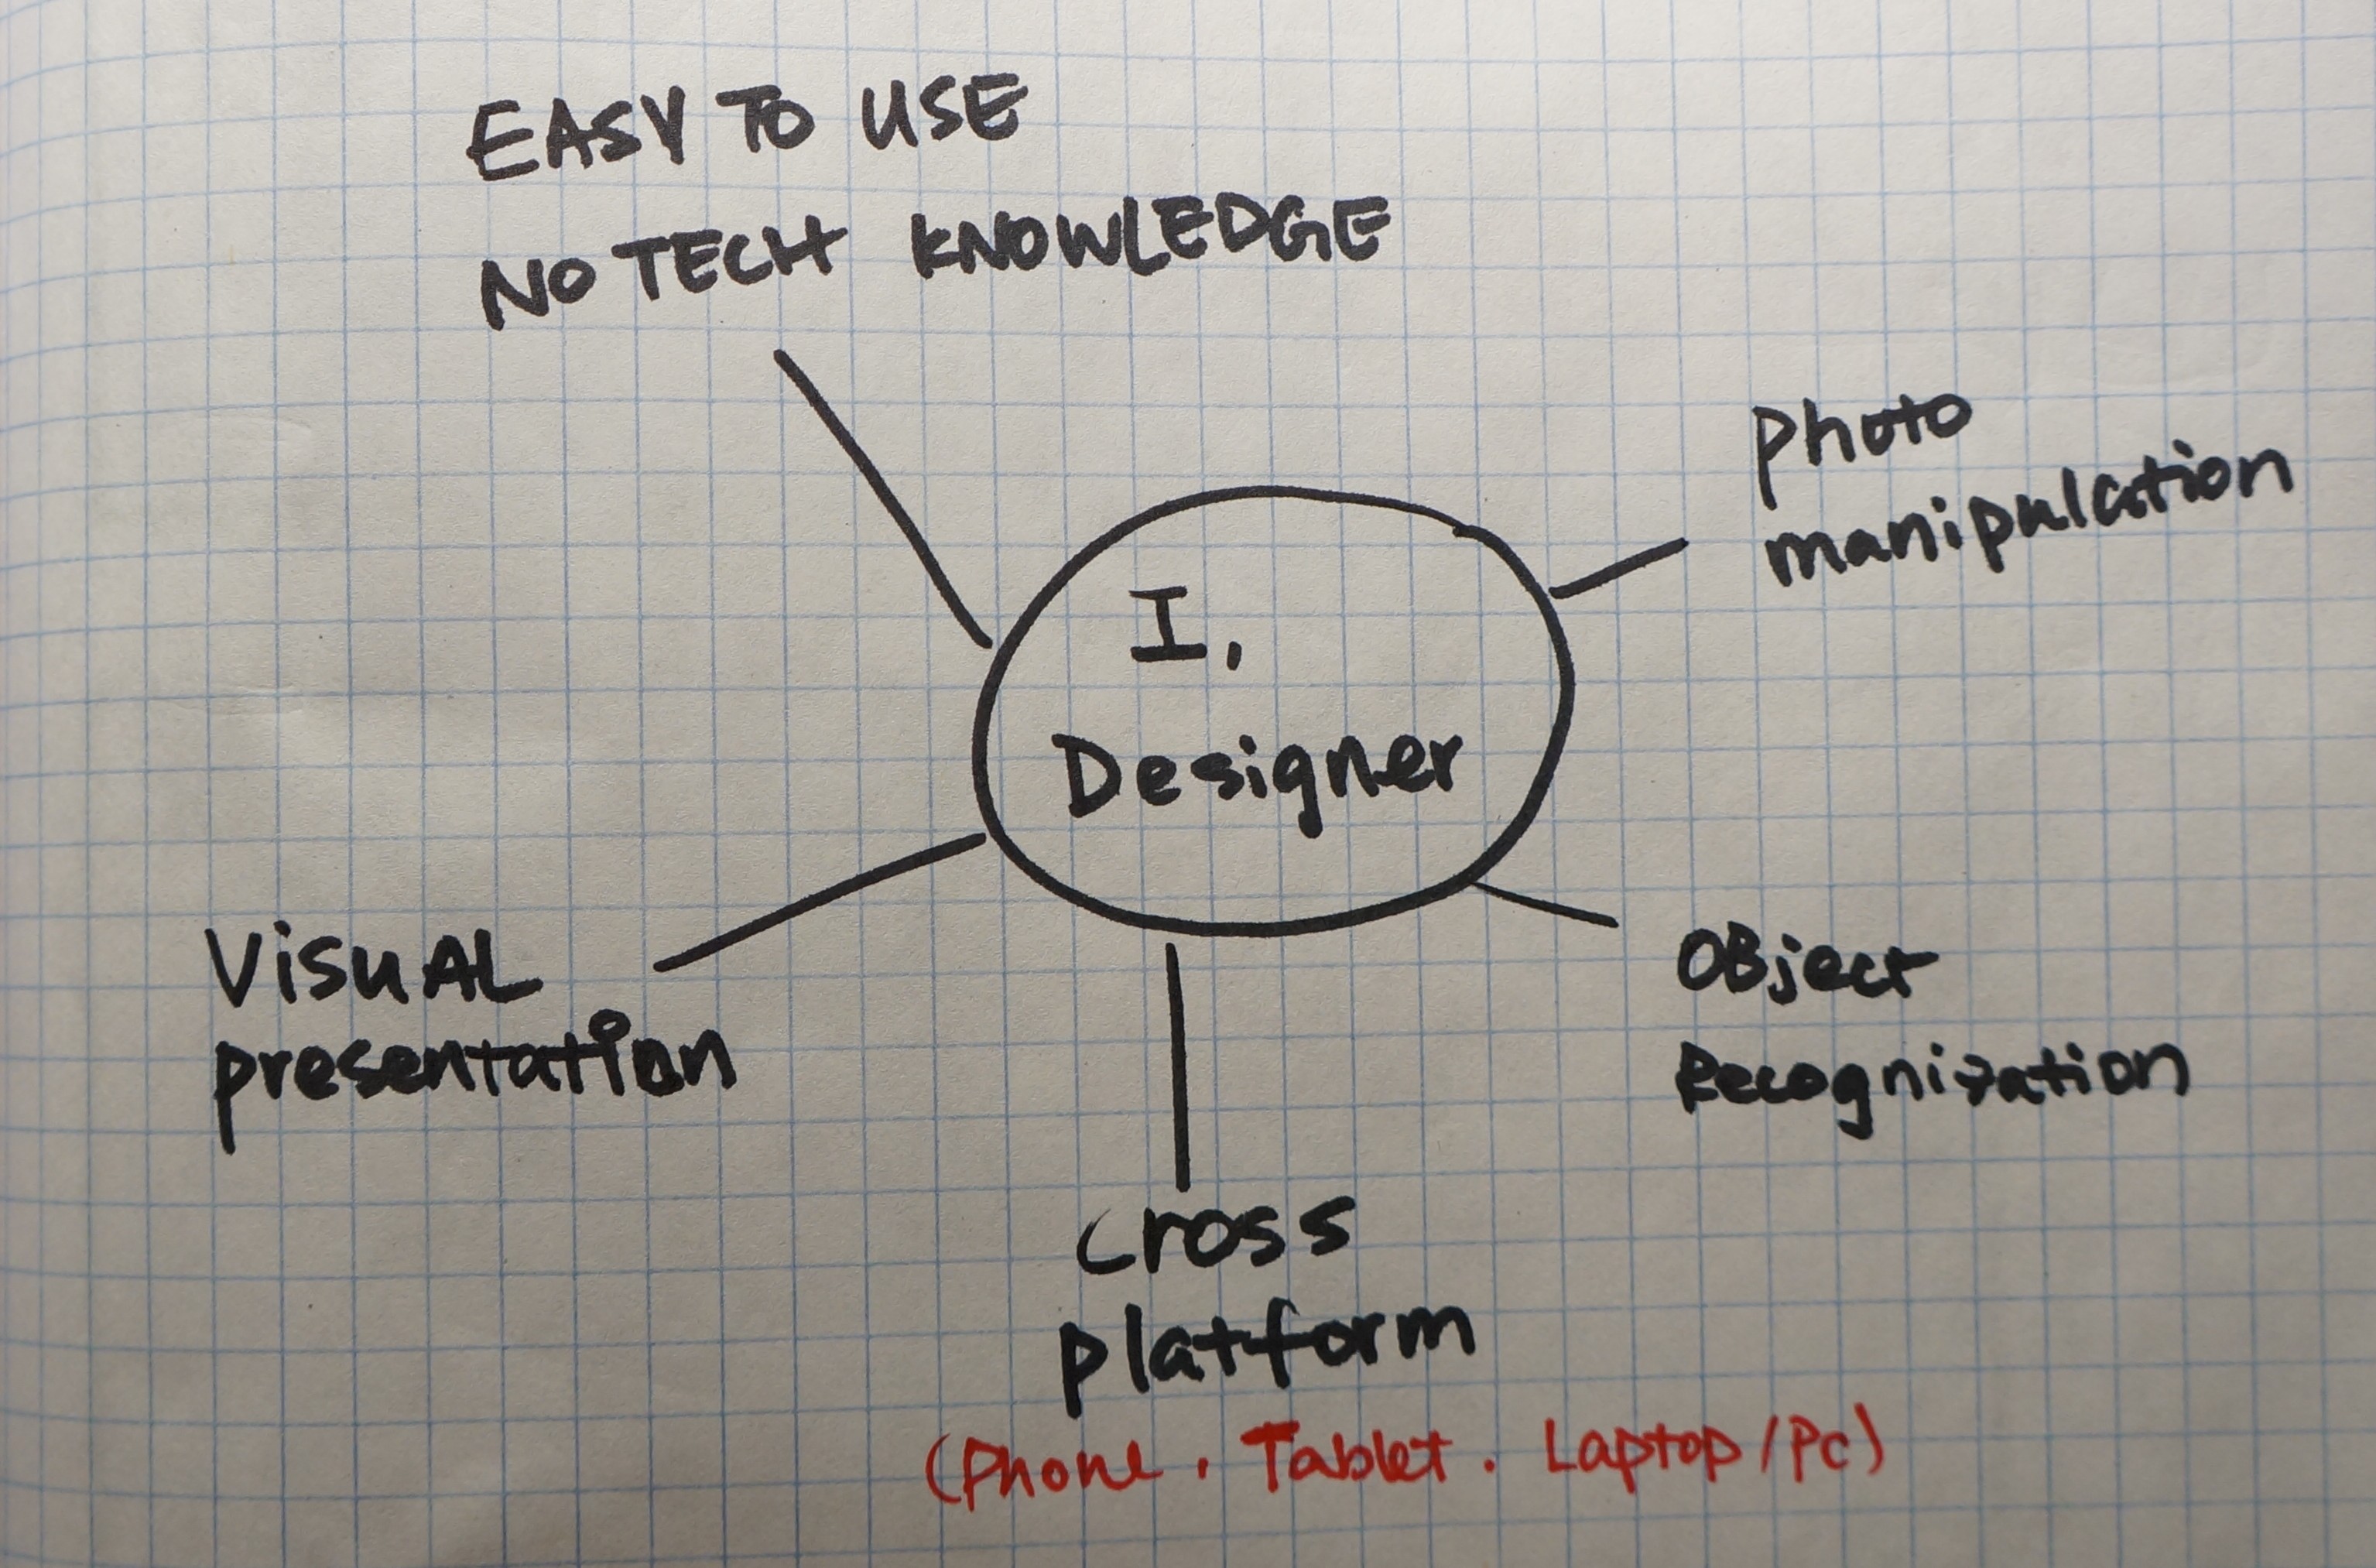 EASY TO USE
NO TECH KNOWLEDGE
Photo
manipulation
I,
Designer
VisuAL
presentation
OBject
Recognization
cross
platform
(Phone, Tablet. Laptop/Pc)